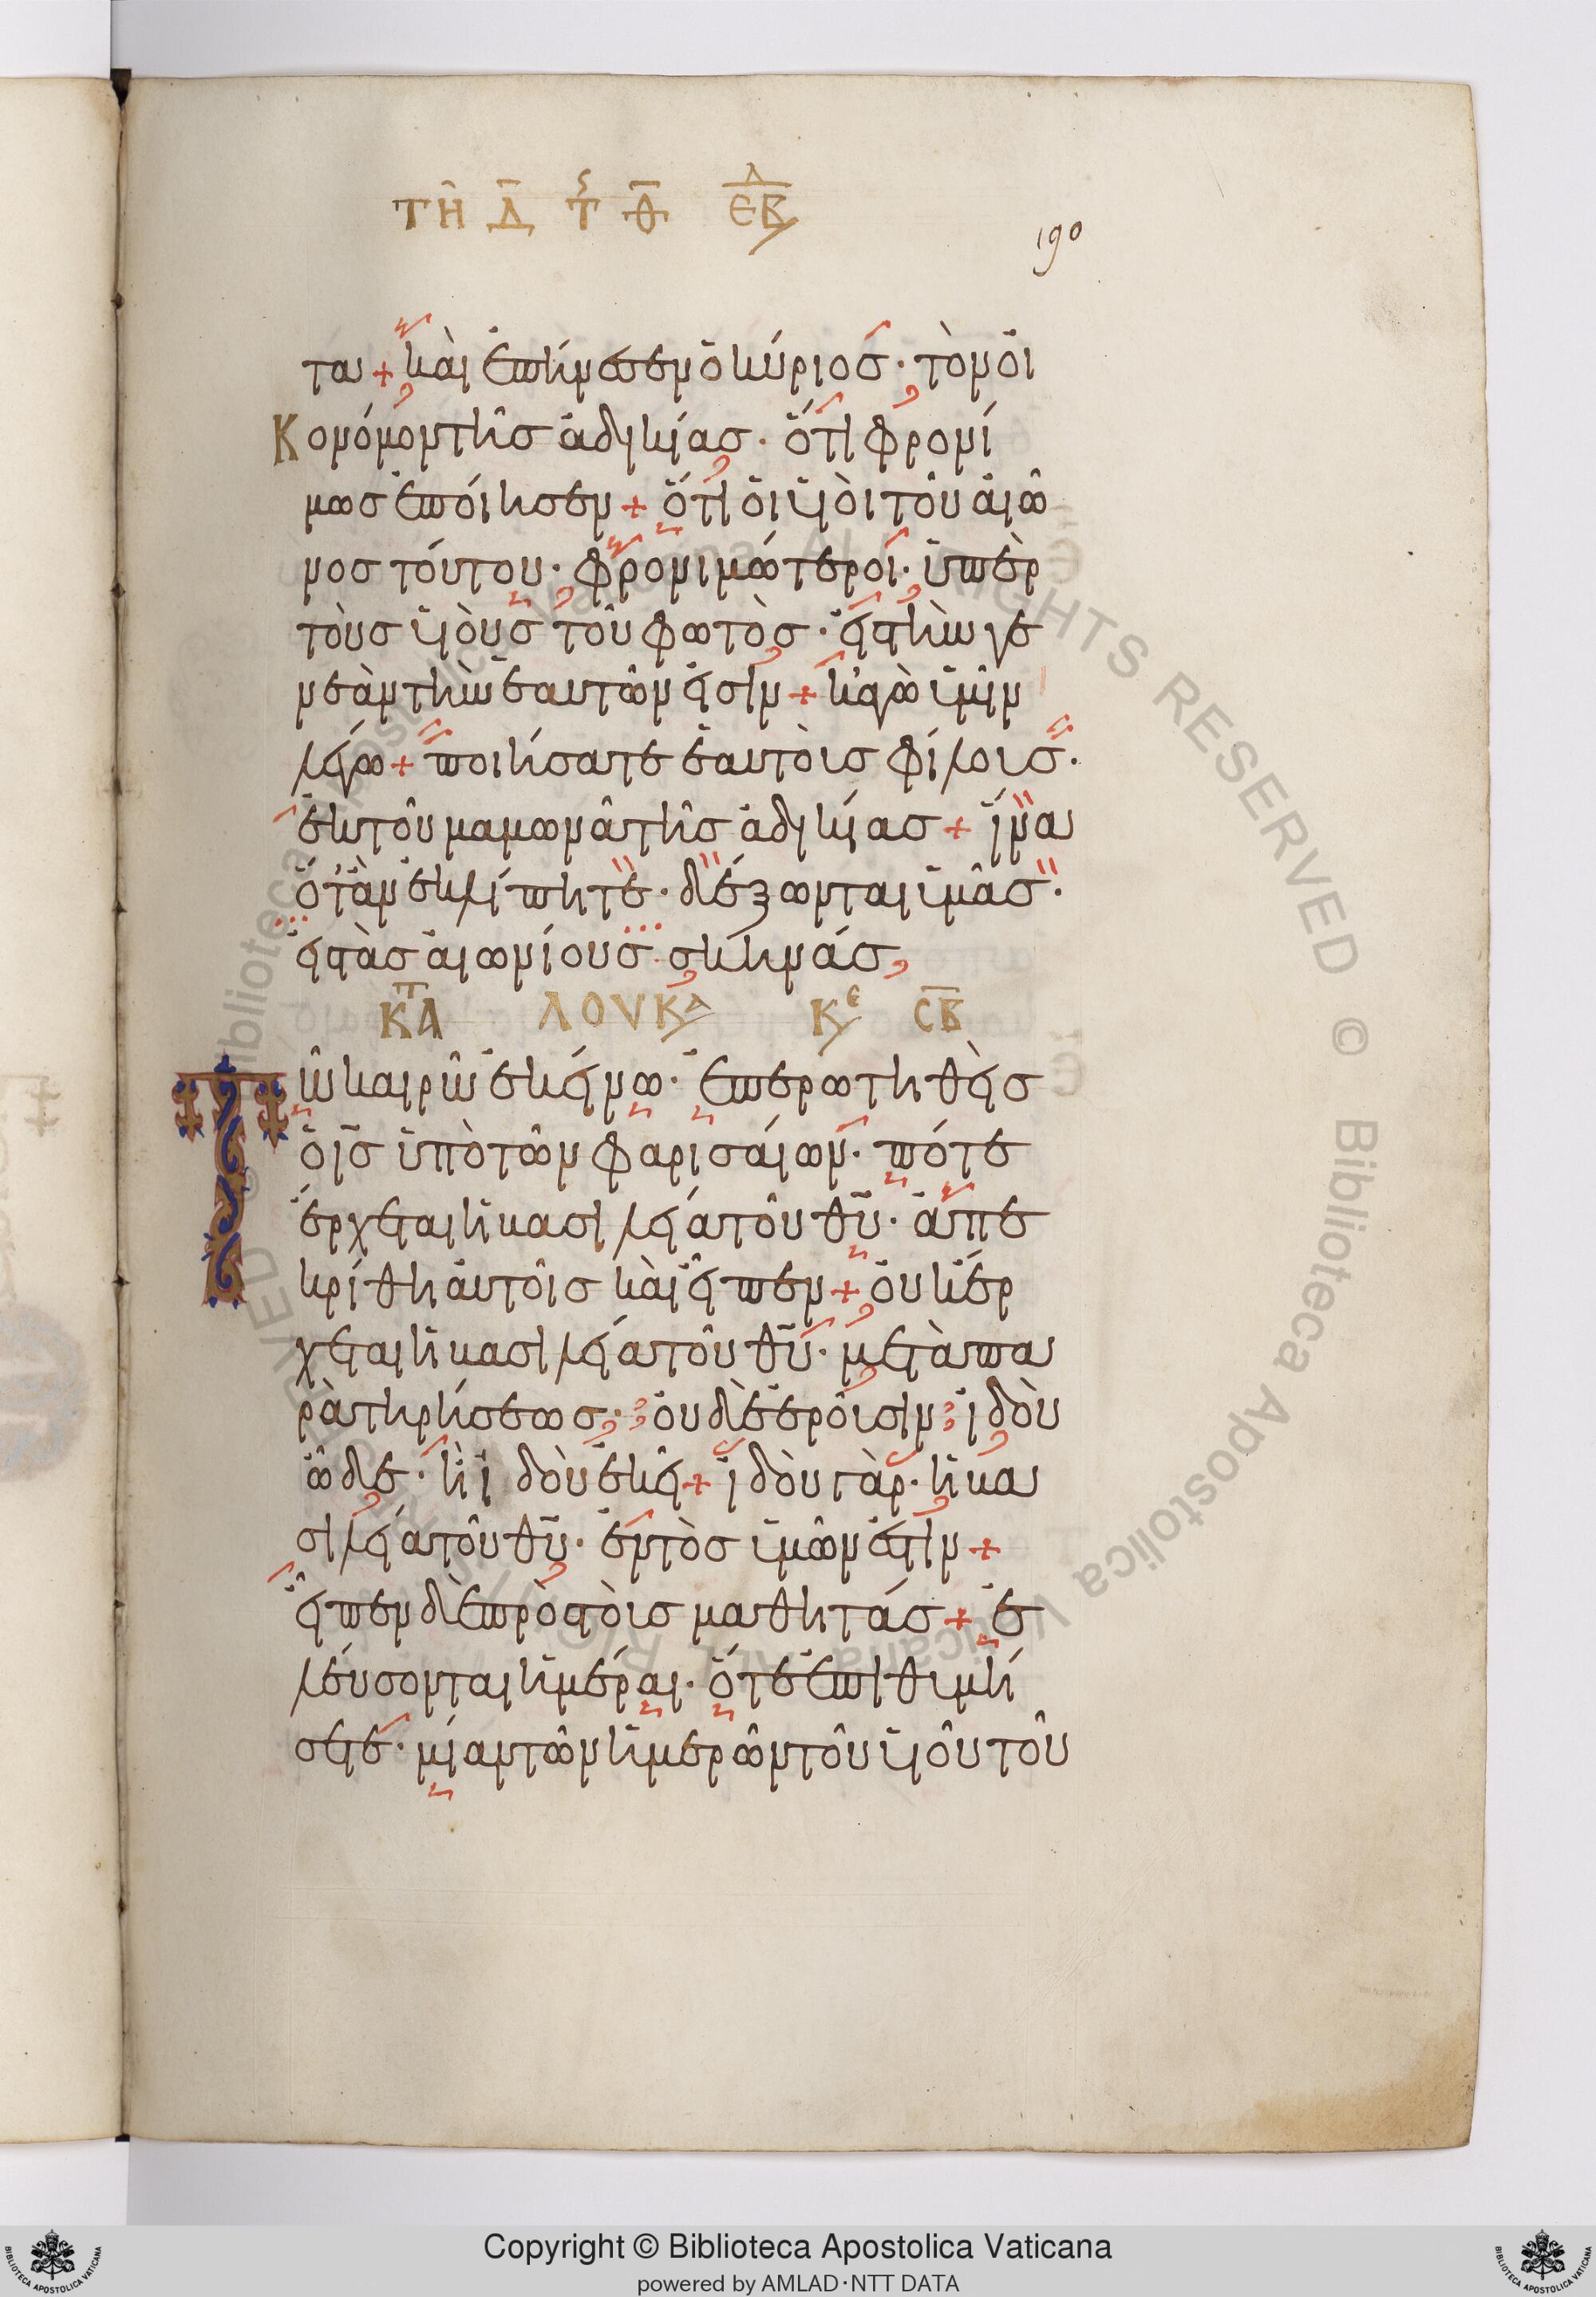 ΤΗ Δ Τ Θ ΕΒΔ
190
τα + καὶ ἐπήνεσεν ὁ κύριος · τὸν οἰ
Κονόμον τῆς ἀδικίας · ὅτι φρονί
μως ἐποίησεν + ὅτι οἱ υἱοὶ τοῦ αἰῶ
νος τούτου · φρονιμώτεροι · ὑπὲρ
τοὺς υἱοὺς τοῦ φωτὸς · εἰς τὴν γε
νεὰν τὴν ἑαυτῶν εἰσὶν + κἀγὼ ὑμῖν
λέγω + ποιήσατε ἑαυτοῖς φίλους ·
ἐκ τοῦ μαμωνᾶ τῆς ἀδικίας + ἵνα
ὅταν ἐκλίπητε · δέξωνται ὑμᾶς ·
εἰς τὰς αἰωνίους · σκηνάς,
ΚΑΤ ΛΟΥΚΑ ΚΕ CΒ
Τῶ καιρῶ ἐκείνω · ἐπερωτηθεὶς
ὁ ις ὑπὸ τῶν φαρισαίων · πότε
ἔρχεται ἡ βασιλεία τοῦ θυ · ἀπε
κρίθη αὐτοῖς καὶ εἶπεν + οὐκ ἔρ
χεται ἡ βασιλεία τοῦ θυ · μετὰ πα
ρατηρήσεως · οὐδὲ ἐροῦσιν ἰδοὺ
ὧδε · ἢ ἰδοὺ ἐκεῖ + ἰδοὺ γὰρ · ἡ βα
σιλεία τοῦ θυ · ἐντὸς ὑμῶν ἐστὶν +
εἶπεν δὲ πρὸς τοὺς μαθητάς + ἐ
λεύσονται ἡμέραι · ὅτε ἐπιθυμή
σετε · μίαν τῶν ἡμερῶν τοῦ υἱοῦ τοῦ
Copyright © Biblioteca Apostolica Vaticana
powered by AMLAD·NTT DATA